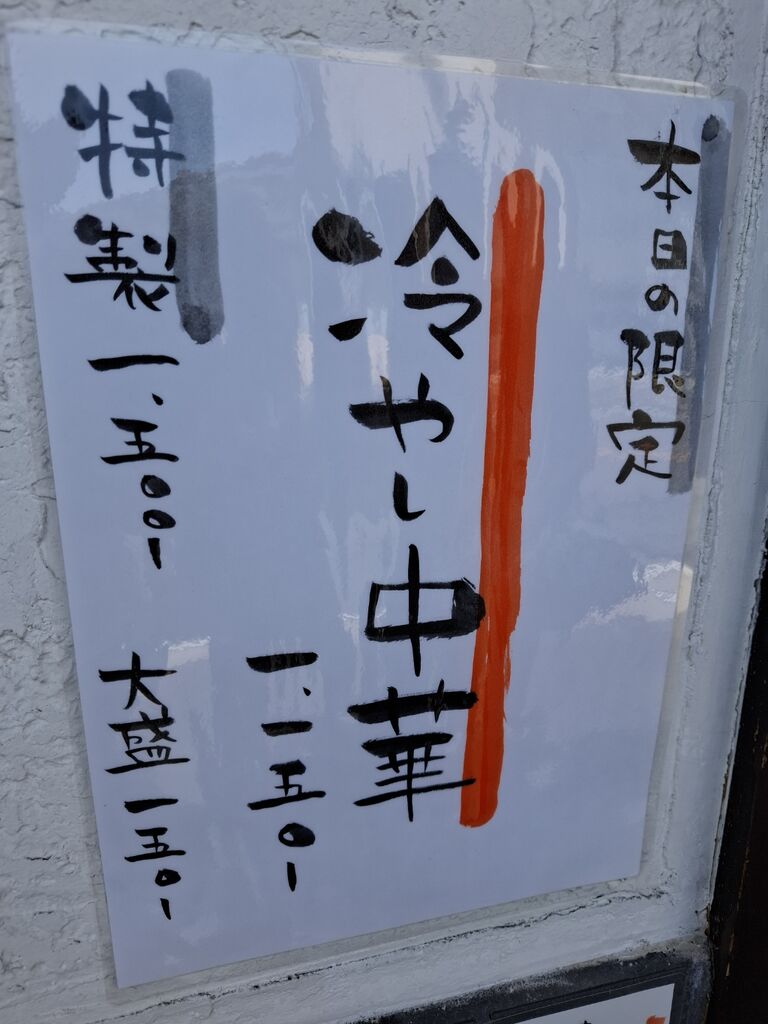 本日の限定
冷やし中華
一、一五〇ー
特製 一、五〇〇ー
大盛 一五〇ー